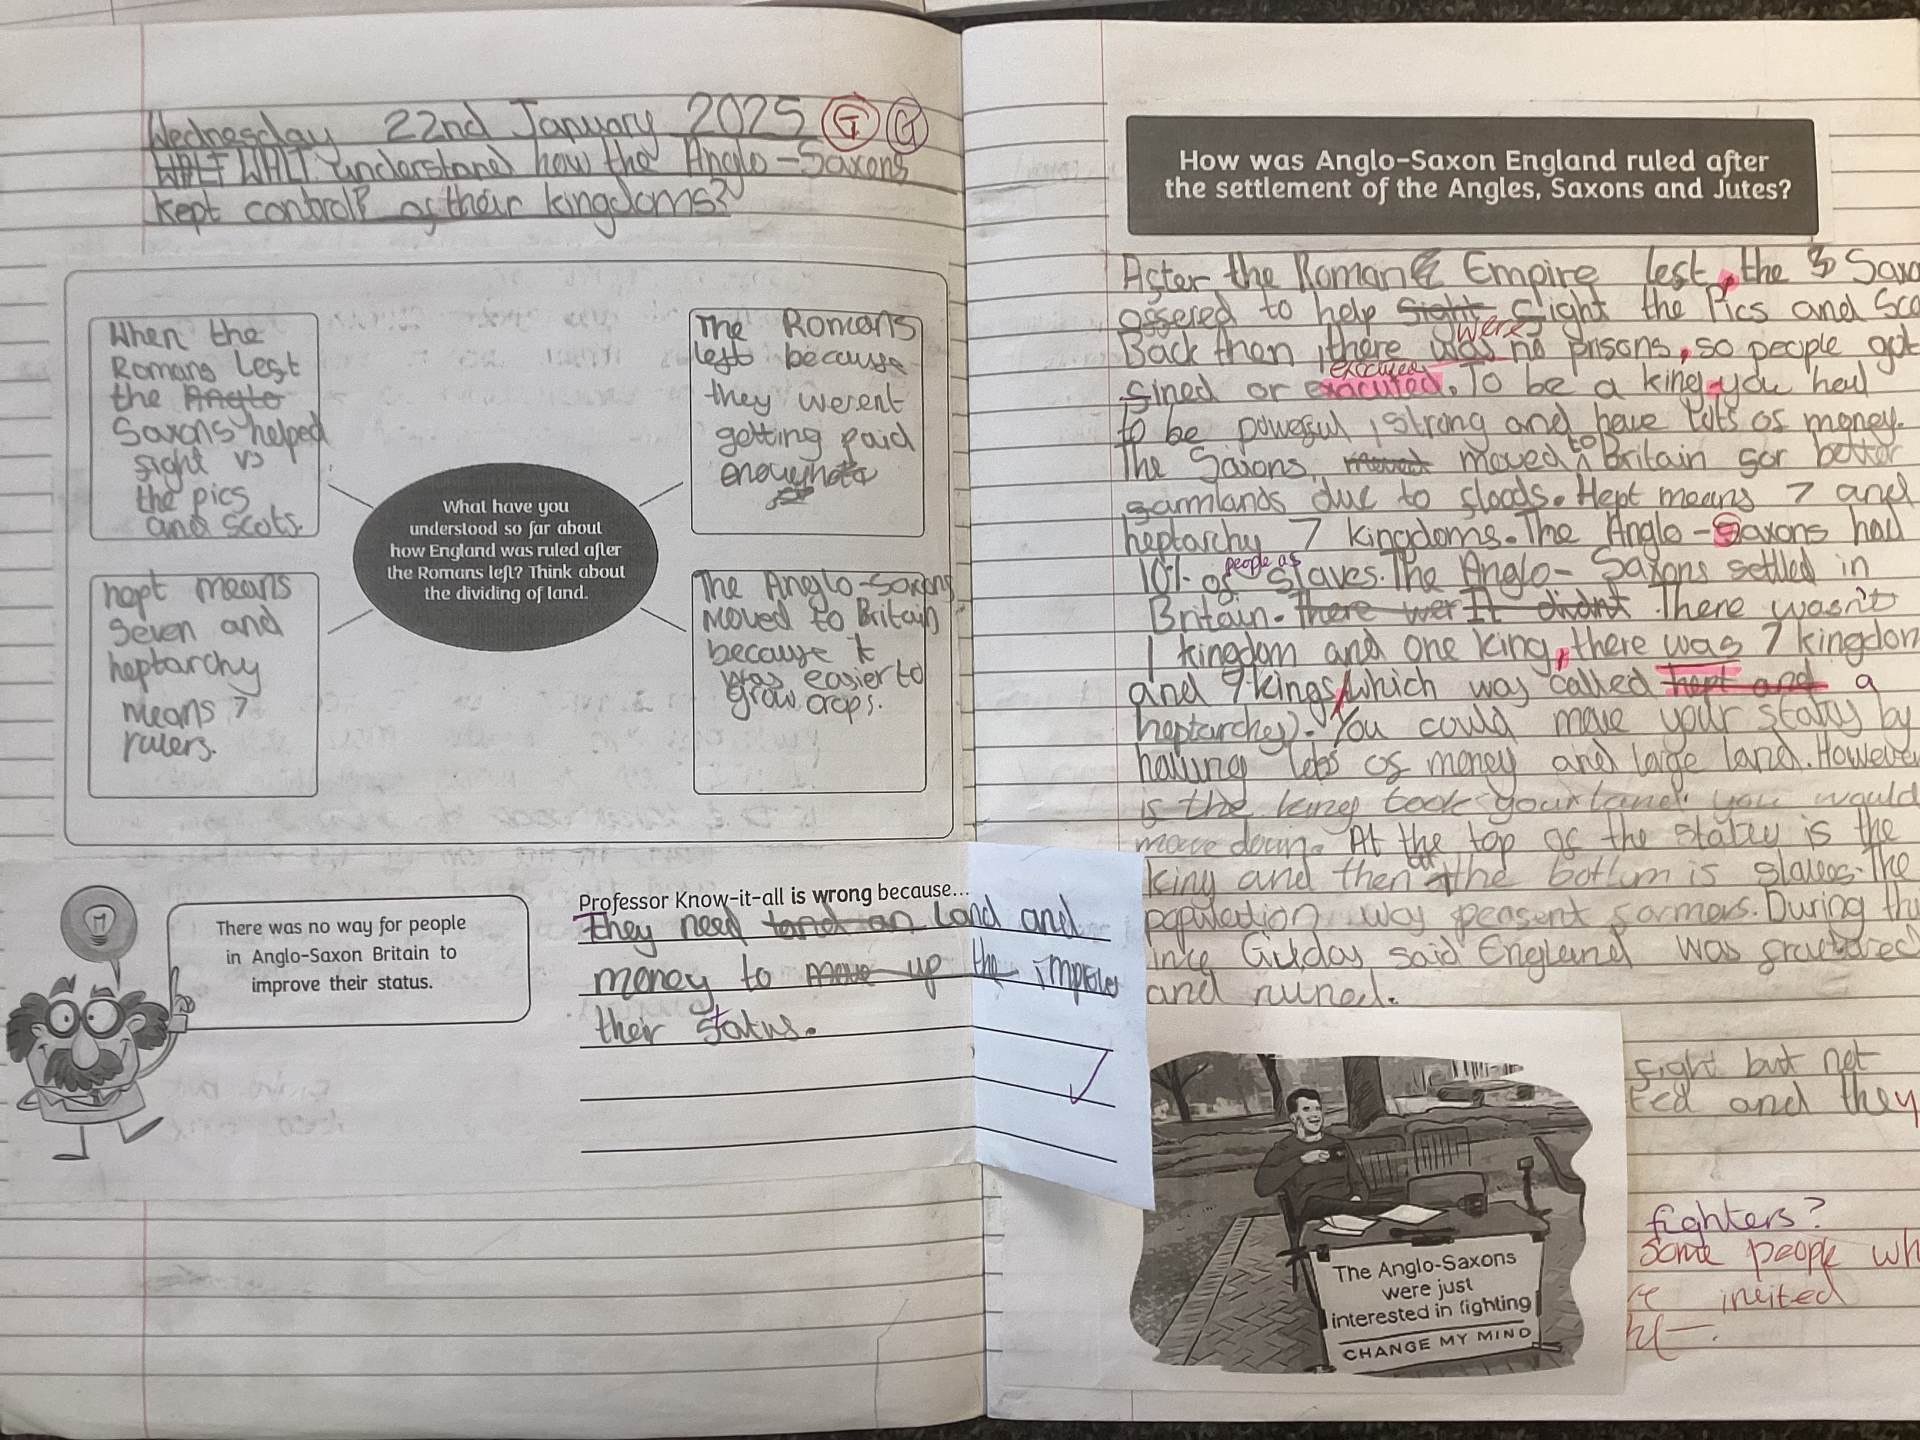 Wednesday 22nd January 2025 G G
WALT understand how the Anglo-Saxons
kept control? of their kingdoms?
When the
Romans Left
the Anglo
Saxons helped
fight vs
the pics
and Scots.
The Romans
left because
they werent
getting paid
enough
What have you
understood so far about
how England was ruled after
the Romans left? Think about
the dividing of land.
hapt means
seven and
heptarchy
means 7
rulers.
The Anglo-Saxons
Moved to Britain
because it
was easier to
grow crops.
There was no way for people
in Anglo-Saxon Britain to
improve their status.
Professor Know-it-all is wrong because...
They need land an Land and
money to move up the improve
their status.
How was Anglo-Saxon England ruled after
the settlement of the Angles, Saxons and Jutes?
After the Roman Empire left, the Saxo
offered to help fight fight the Pics and Sco
Back then, there was were no prisons, so people got
fined or exacuted. To be a king, you had
to be powerful, strong and have lots of money.
The Saxons, moved moved to Britain for better
farmlands due to floods. Hept means 7 and
heptarchy 7 kingdoms. The Anglo-Saxons had
10% of people as slaves. The Anglo-Saxons settled in
Britain. There wer It didnt There wasn't
1 kingdom and one king, there was 7 kingdom
and 7 kings, which was called hept and a
heptarchy). You could move your staty by
having lots of money and large land. Howeve
if the king took your land, you would
move down. At the top of the staty is the
king and then at the bottum is slaves. The
population was peasent farmers. During thi
time Gildas said England was fractured
and ruined.
The Anglo-Saxons
were just
interested in fighting
CHANGE MY MIND
fight but not
ted and they
fighters?
some people wh
re invited